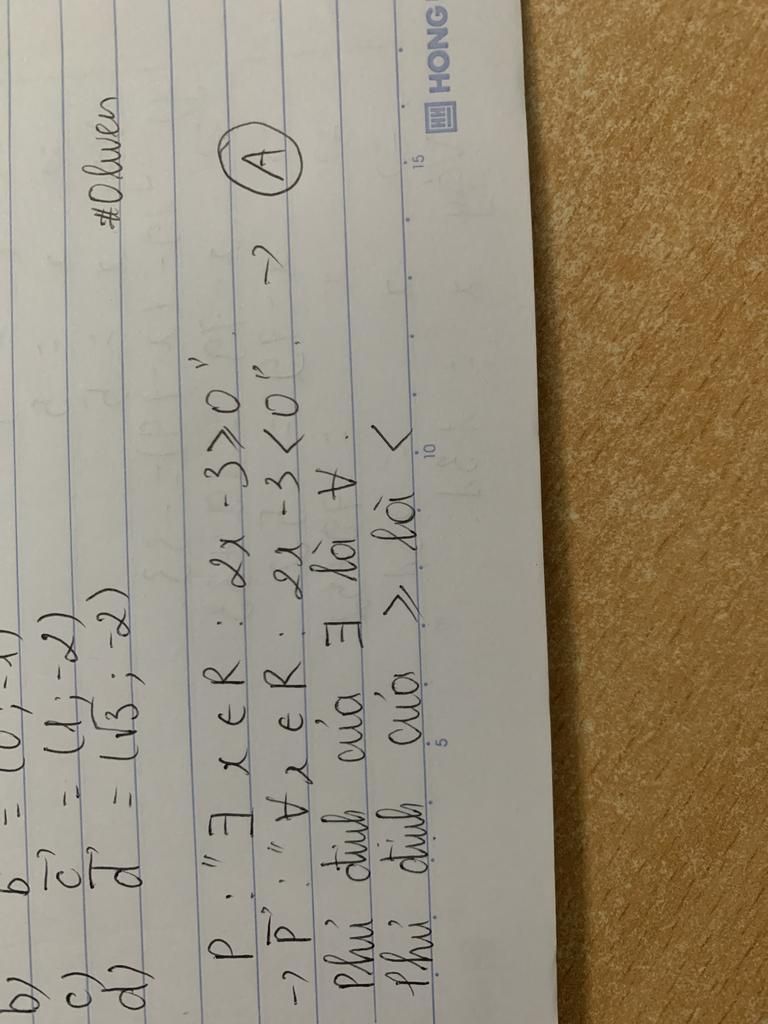 b) b = (0 ; -1)
c) c⃗ = (1 ; -2)
d) d⃗ = (√3 ; -2)
#Oliwen
P : "∃ x ∈ R : 2x - 3 ⩾ 0"
→ P̅ : "∀ x ∈ R : 2x - 3 < 0" → A
Phủ định của ∃ là ∀.
Phủ định của ⩾ là <
5 10 15
HH HONG